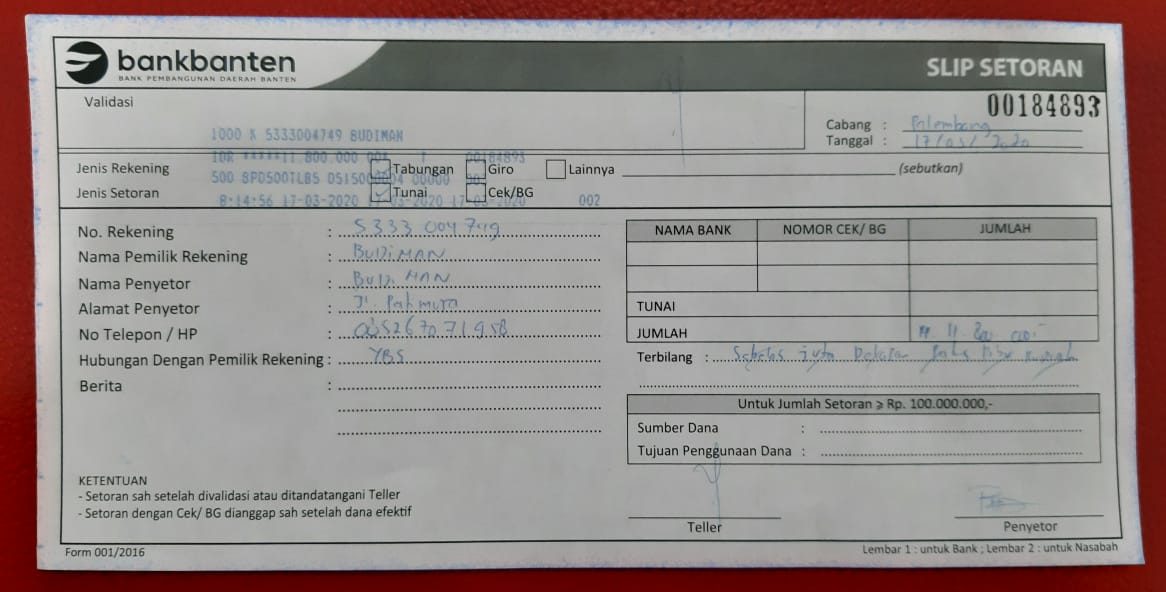 bankbanten
BANK PEMBANGUNAN DAERAH BANTEN
SLIP SETORAN
Validasi
00184893
Cabang : Palembang
Tanggal : 17/03/2020
1000 K 5333004749 BUDIMAN
IDR ******11.800.000 00184893
8:14:56 17-03-2020 17-03-2020 17-03-2020 002
Jenis Rekening Tabungan Giro Lainnya (sebutkan)
Jenis Setoran Tunai Cek/BG
No. Rekening : 5333 004 749
Nama Pemilik Rekening : BUDIMAN
Nama Penyetor : BUDIMAN
Alamat Penyetor : Jl.
No Telepon / HP : 085267071958
Hubungan Dengan Pemilik Rekening : YBS
Berita :
NAMA BANK NOMOR CEK/ BG JUMLAH
TUNAI
JUMLAH
Terbilang : Sebelas juta Delapan Ratus Ribu Rupiah
Untuk Jumlah Setoran ⩾ Rp. 100.000.000,-
Sumber Dana :
Tujuan Penggunaan Dana :
KETENTUAN
- Setoran sah setelah divalidasi atau ditandatangani Teller
- Setoran dengan Cek/ BG dianggap sah setelah dana efektif
Teller
Penyetor
Form 001/2016
Lembar 1 : untuk Bank ; Lembar 2 : untuk Nasabah